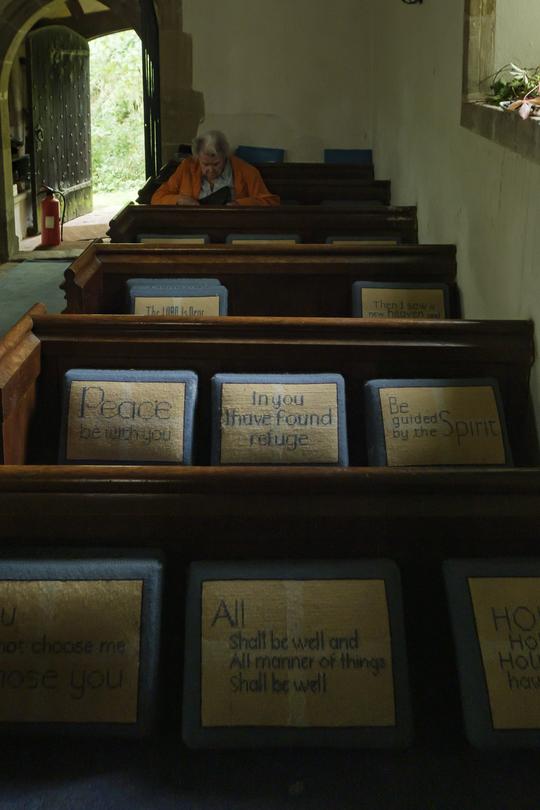 The LORD is near
Then I saw a
new heaven and
Peace
be with you
In you
I have found
refuge
Be
guided
by the Spirit
not choose me
chose you
All
Shall be well and
All manner of things
Shall be well